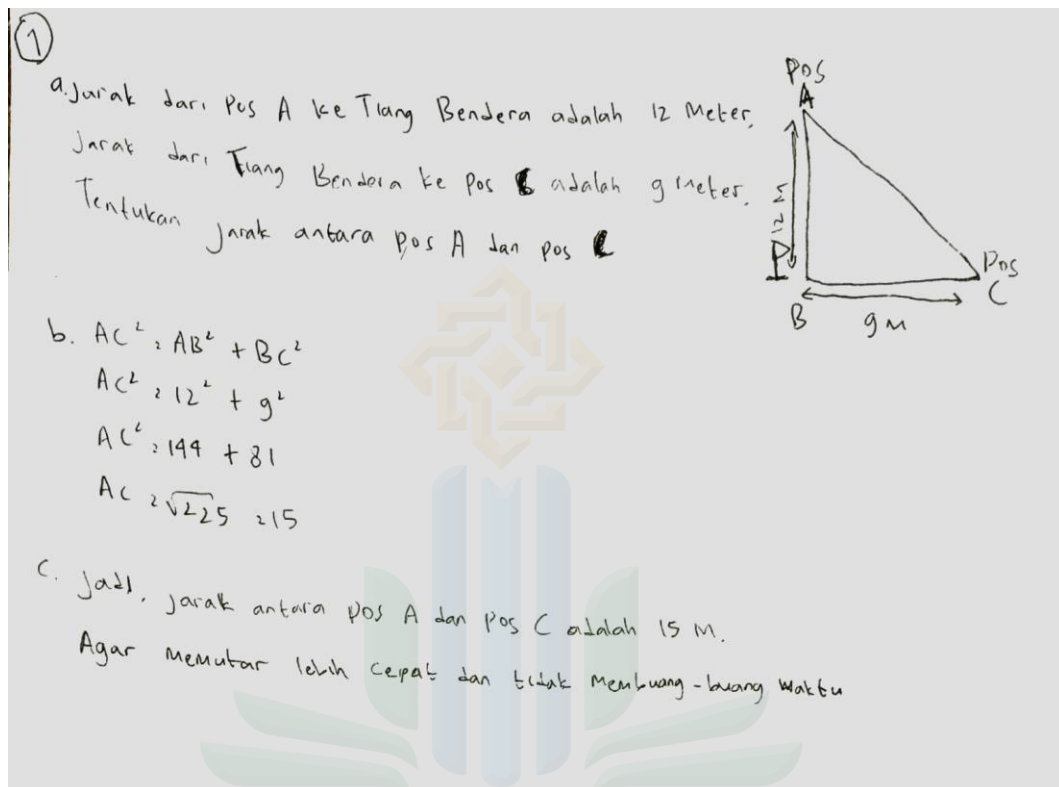 1
a. Jarak dari Pos A ke Tiang Bendera adalah 12 Meter,
jarak dari Tiang Bendera ke Pos C adalah 9 Meter.
Tentukan jarak antara pos A dan pos C
Pos
A
12 M
B
9 M
Pos
C
b. AC² = AB² + BC²
AC² = 12² + 9²
AC² = 144 + 81
AC = √225 = 15
c. Jadi, jarak antara pos A dan pos C adalah 15 M.
Agar memutar lebih cepat dan tidak membuang-buang waktu